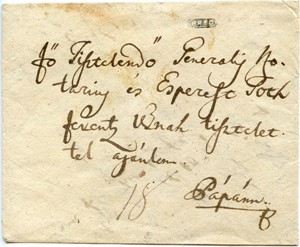 Fő Tisztelendő Generalis No-
tarius és Esperest Toth
ferentz Urnak tisztelet
tel ajánlom
18
Pápánn.